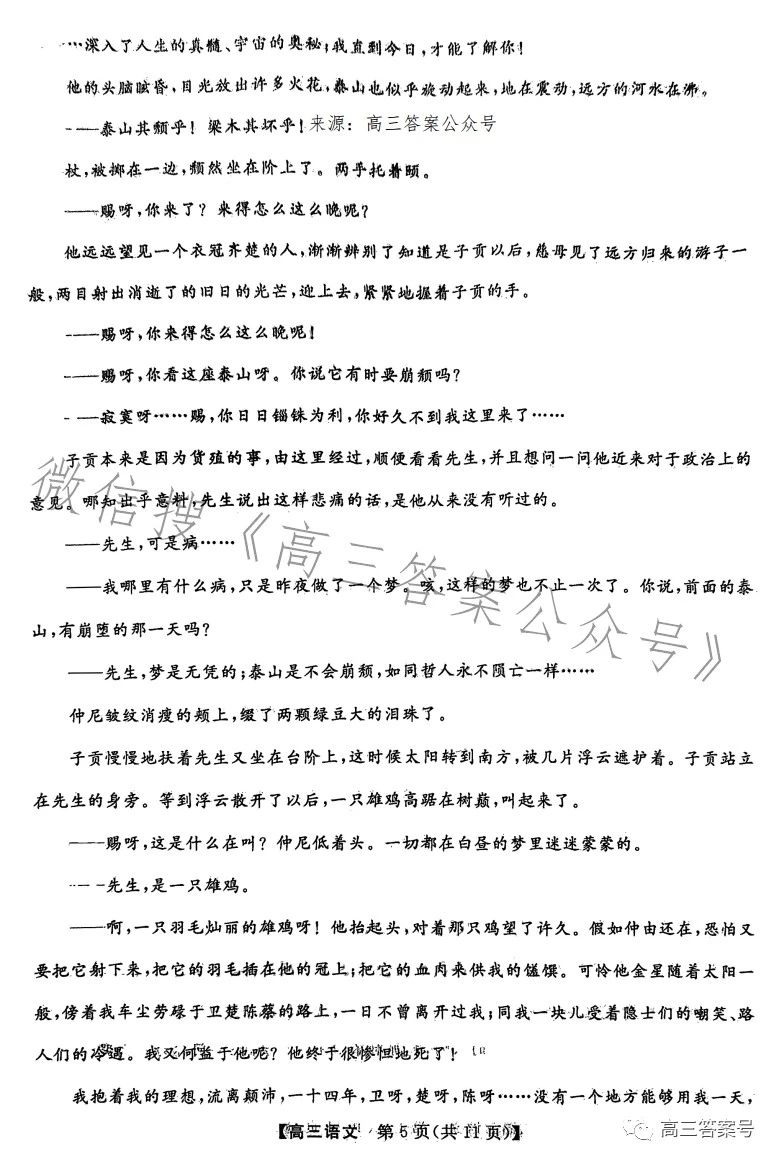 ……深入了人生的真髓、宇宙的奥秘;我直到今日,才能了解你!
他的头脑眩昏,目光放出许多火花,泰山也似乎旋动起来,地在震动,远方的河水在沸。
——泰山其颓乎!梁木其坏乎!来源:高三答案公众号
杖,被掷在一边,颓然坐在阶上了。两手托着颐。
——赐呀,你来了?来得怎么这么晚呢?
他远远望见一个衣冠齐楚的人,渐渐辨别了知道是子贡以后,慈母见了远方归来的游子一
般,两目射出消逝了的旧日的光芒,迎上去,紧紧地握着子贡的手。
——赐呀,你来得怎么这么晚呢!
——赐呀,你看这座泰山呀。你说它有时要崩颓吗?
——寂寞呀……赐,你日日锱铢为利,你好久不到我这里来了……
子贡本来是因为货殖的事,由这里经过,顺便看看先生,并且想问一问他近来对于政治上的
意见。哪知出乎意料,先生说出这样悲痛的话,是他从来没有听过的。
——先生,可是病……
——我哪里有什么病,只是昨夜做了一个梦。咳,这样的梦也不止一次了。你说,前面的泰
山,有崩堕的那一天吗?
——先生,梦是无凭的;泰山是不会崩颓,如同哲人永不陨亡一样……
仲尼皱纹消瘦的颊上,缀了两颗绿豆大的泪珠了。
子贡慢慢地扶着先生又坐在台阶上,这时候太阳转到南方,被几片浮云遮护着。子贡站立
在先生的身旁。等到浮云散开了以后,一只雄鸡高踞在树巅,叫起来了。
——赐呀,这是什么在叫?仲尼低着头。一切都在白昼的梦里迷迷蒙蒙的。
——先生,是一只雄鸡。
——啊,一只羽毛灿丽的雄鸡呀!他抬起头,对着那只鸡望了许久。假如仲由还在,恐怕又
要把它射下来,把它的羽毛插在他的冠上;把它的血肉来供我的馐馔。可怜他金星随着太阳一
般,傍着我车尘劳碌于卫楚陈蔡的路上,一日不曾离开过我;同我一块儿受着隐士们的嘲笑、路
人们的冷遇。我又何益于他呢?他终于很惨怛地死了!
我抱着我的理想,流离颠沛,一十四年,卫呀,楚呀,陈呀……没有一个地方能够用我一天,
【高三语文 第5页(共11页)】
微信搜《高三答案公众号》
高三答案号